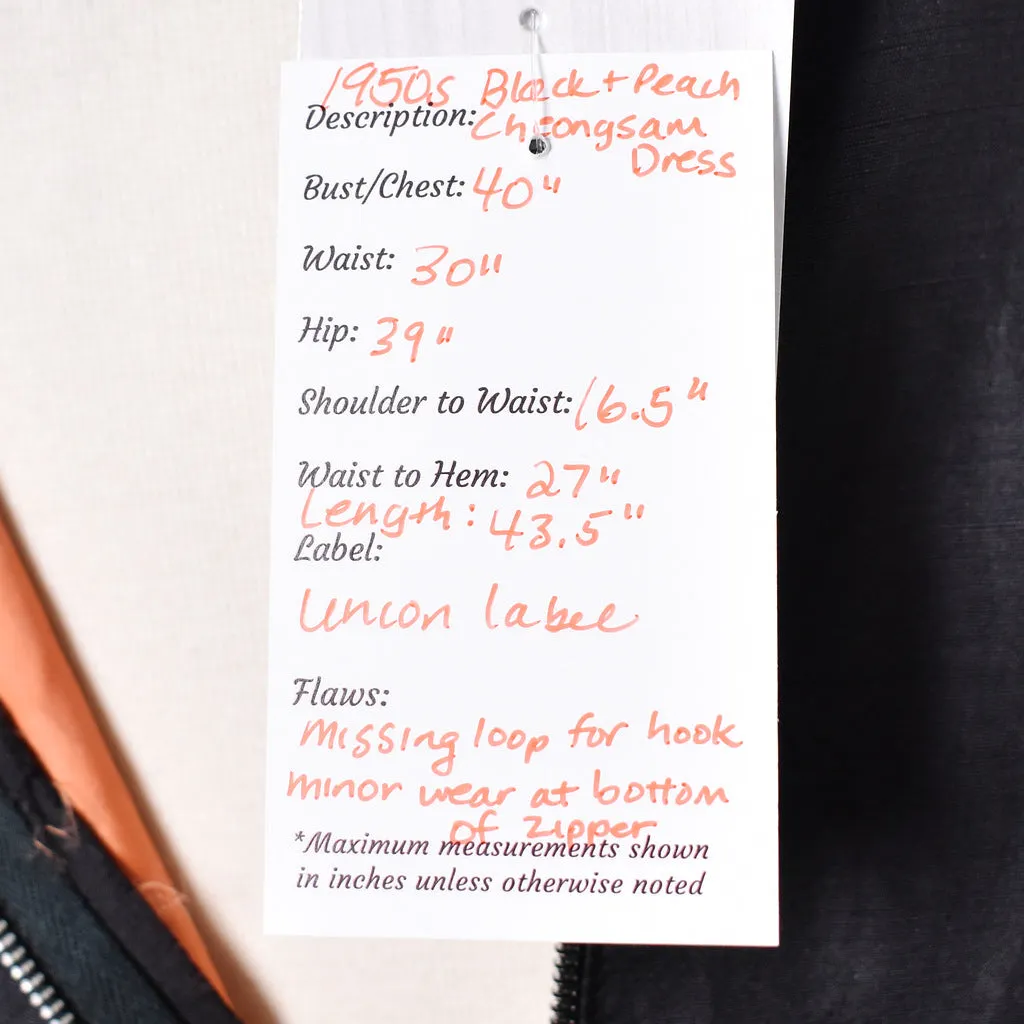 1950s Black + Peach
Description: Cheongsam
Dress
Bust/Chest: 40"
Waist: 30"
Hip: 39"
Shoulder to Waist: 16.5"
Waist to Hem: 27"
Length: 43.5"
Label:
Union label
Flaws:
Missing loop for hook
minor wear at bottom
of zipper
*Maximum measurements shown
in inches unless otherwise noted